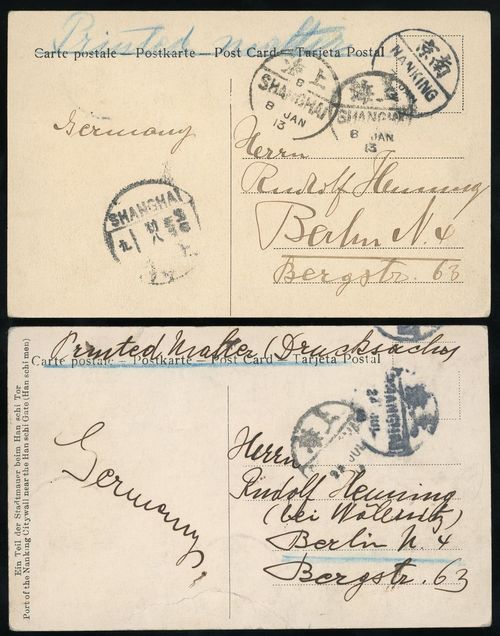 Printed matter
Carte postale – Postkarte – Post Card – Tarjeta Postal
南京
NANKING
上海
6
SHANGHAI
8 JAN
13
上海
SHANGHAI
8 JAN
13
Germany
Herrn
Rudolf Henning
Berlin N. 4
Bergstr. 63
SHANGHAI
Printed Matter (Drucksache)
Carte postale – Postkarte – Post Card – Tarjeta Postal
上海
SHANGHAI
24 JUL
上海
Germany
Herrn
Rudolf Henning
Berlin N. 4
Bergstr. 63
Ein Teil der Stadtmauer beim Han schi Tor
Part of the Nanking Citywall near the Han schi Gate (Han schi men)